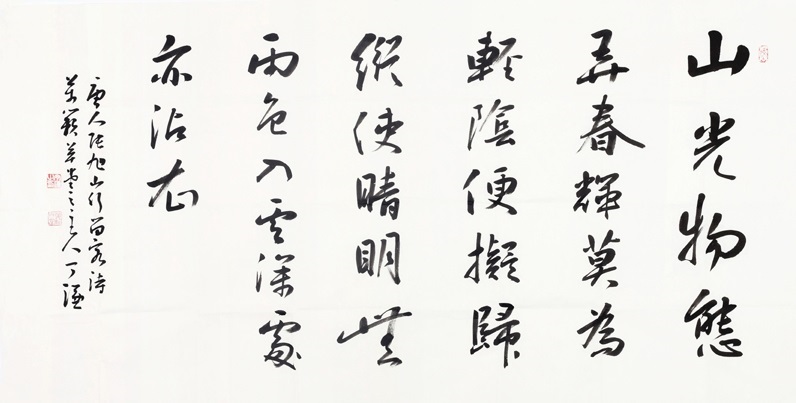 山光物態
弄春輝莫為
輕陰便擬歸
縱使晴明無
雨色入雲深處
亦沾衣
唐人張旭山行留客詩
草堂主人丁謙